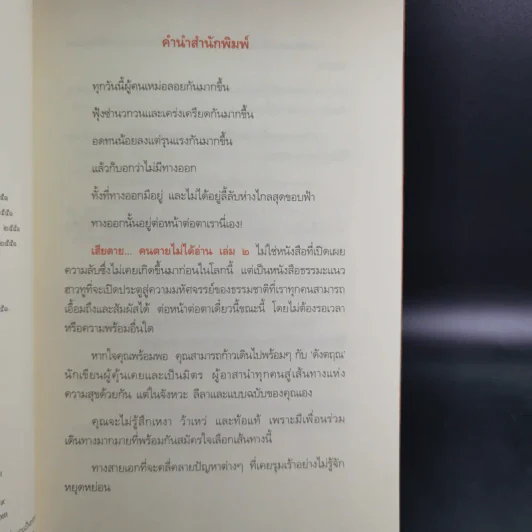 คำนำสำนักพิมพ์
ทุกวันนี้ผู้คนเหม่อลอยกันมากขึ้น
ฟุ้งซ่านวกวนและเคร่งเครียดกันมากขึ้น
อดทนน้อยลงแต่รุนแรงกันมากขึ้น
แล้วก็บอกว่าไม่มีทางออก
ทั้งที่ทางออกมีอยู่ และไม่ได้อยู่ลี้ลับห่างไกลสุดขอบฟ้า
ทางออกนั้นอยู่ต่อหน้าต่อตาเรานี่เอง!
เสียดาย... คนตายไม่ได้อ่าน เล่ม ๒ ไม่ใช่หนังสือที่เปิดเผย
ความลับซึ่งไม่เคยเกิดขึ้นมาก่อนในโลกนี้ แต่เป็นหนังสือธรรมะแนว
ฮาวทูที่จะเปิดประตูสู่ความมหัศจรรย์ของธรรมชาติที่เราทุกคนสามารถ
เอื้อมถึงและสัมผัสได้ ต่อหน้าต่อตาเดี๋ยวนี้ขณะนี้ โดยไม่ต้องรอเวลา
หรือความพร้อมอื่นใด
หากใจคุณพร้อมพอ คุณสามารถก้าวเดินไปพร้อมๆ กับ 'ดังตฤณ'
นักเขียนผู้คุ้นเคยและเป็นมิตร ผู้อาสานำทุกคนสู่เส้นทางแห่ง
ความสุขด้วยกัน แต่ในจังหวะ ลีลาและแบบฉบับของคุณเอง
คุณจะไม่รู้สึกเหงา ว้าเหว่ และท้อแท้ เพราะมีเพื่อนร่วม
เดินทางมากมายที่พร้อมกันสมัครใจเลือกเส้นทางนี้
ทางสายเอกที่จะคลี่คลายปัญหาต่างๆ ที่เคยรุมเร้าอย่างไม่รู้จัก
หยุดหย่อน